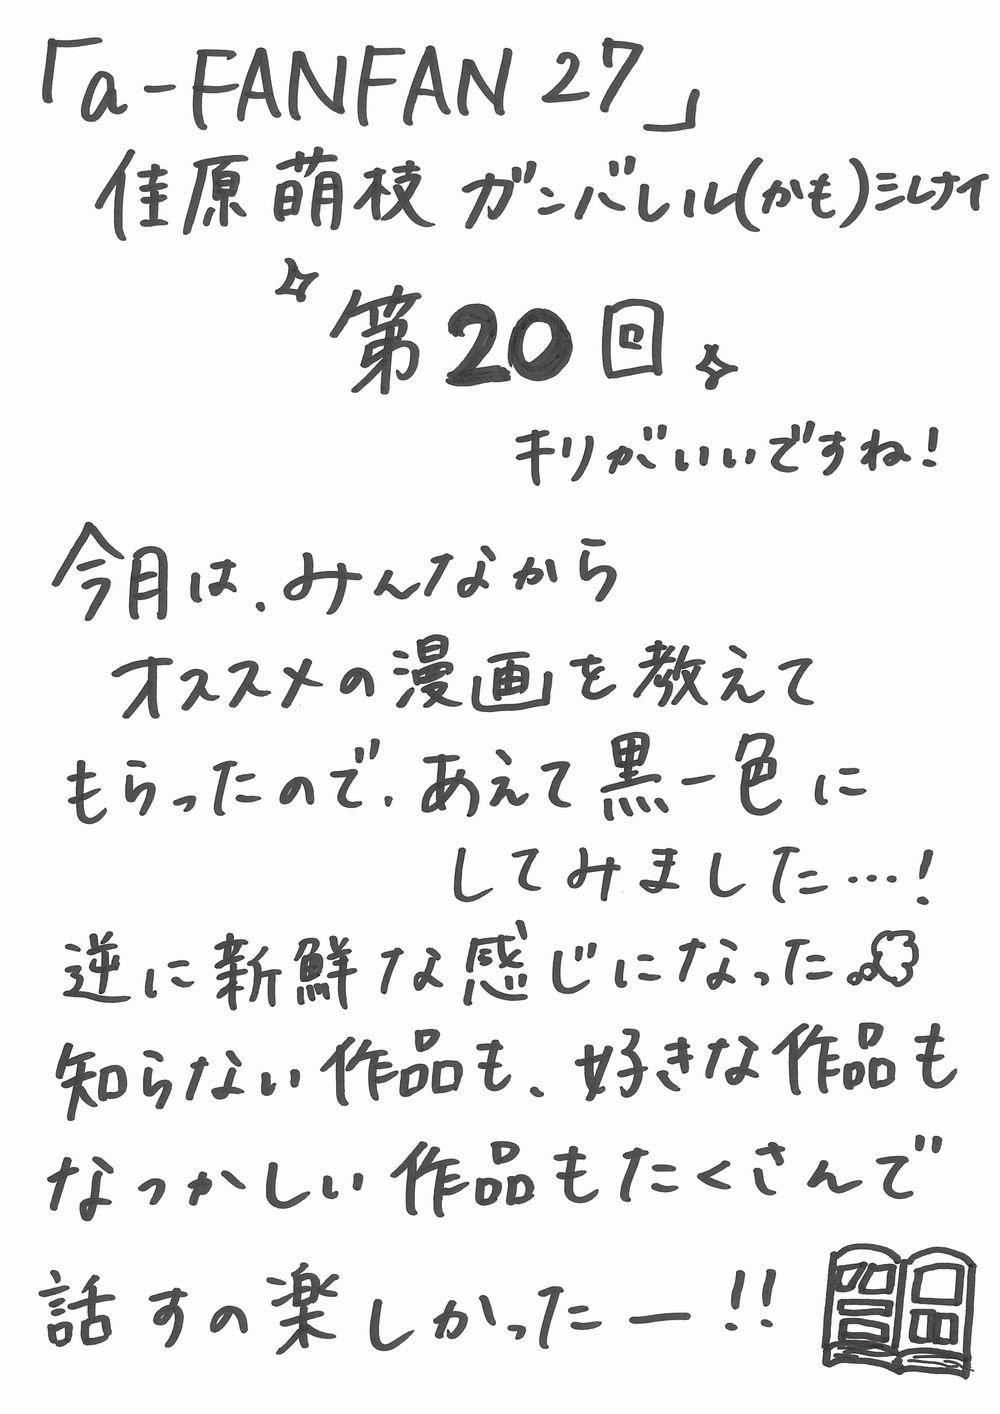 「a-FANFAN 27」
佳原萌枝 ガンバレルル(かも)ミレナイ
第20回
キリがいいですね!
今月は、みんなから
オススメの漫画を教えて
もらったので、あえて黒一色に
してみました…!
逆に新鮮な感じになった
知らない作品も、好きな作品も
なつかしい作品もたくさんで
話すの楽しかったー!!